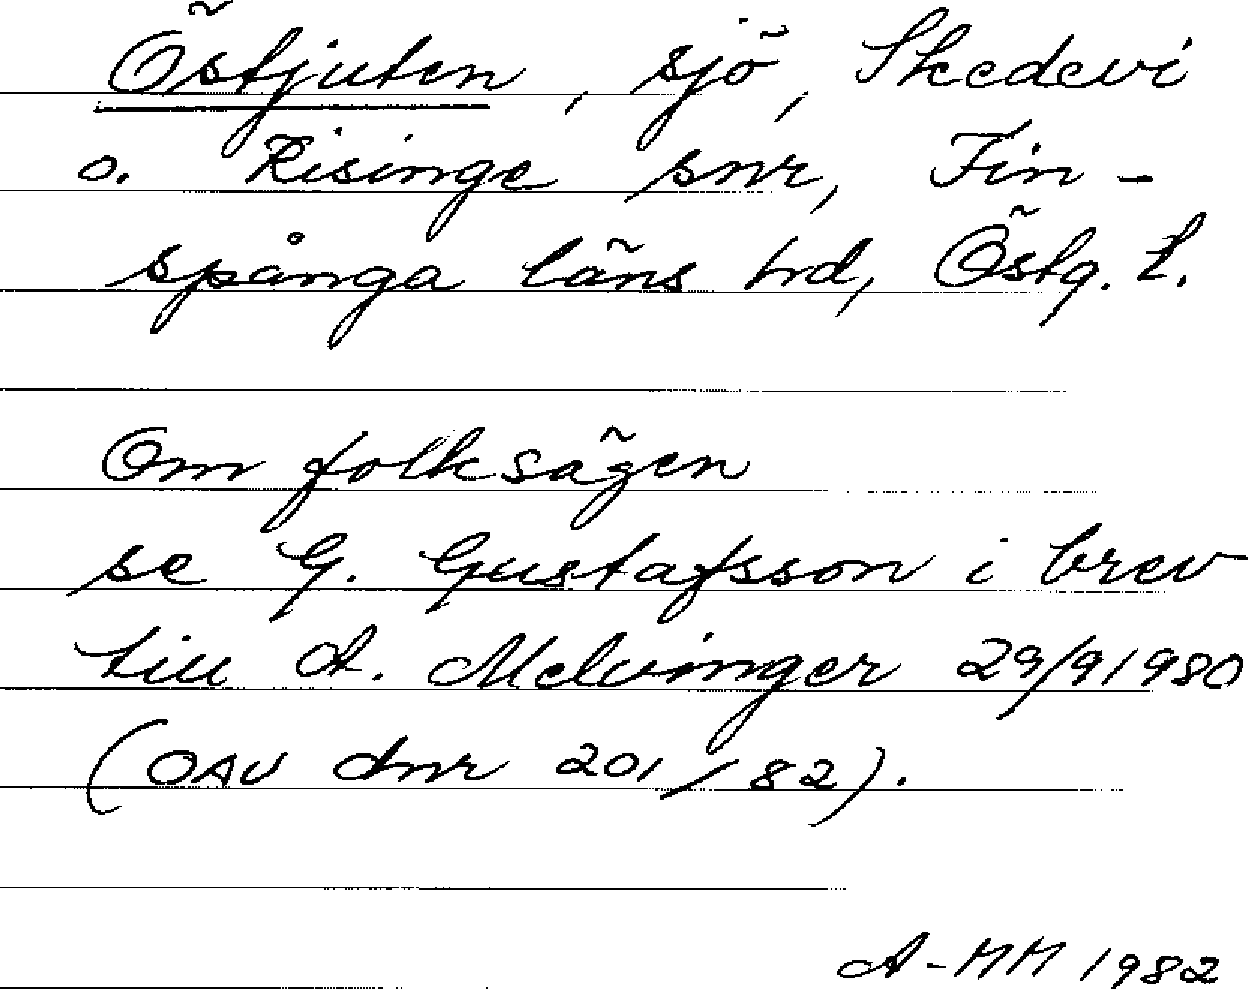 Östjuten, sjö, Skedevi
o. Risinge snr, Fin-
spånga läns hd, Östg. l.
Om folksägen
se G. Gustafsson i brev
till A. Melvinger 29/9 1980
(OAU dnr 201/82).
A-MH 1982